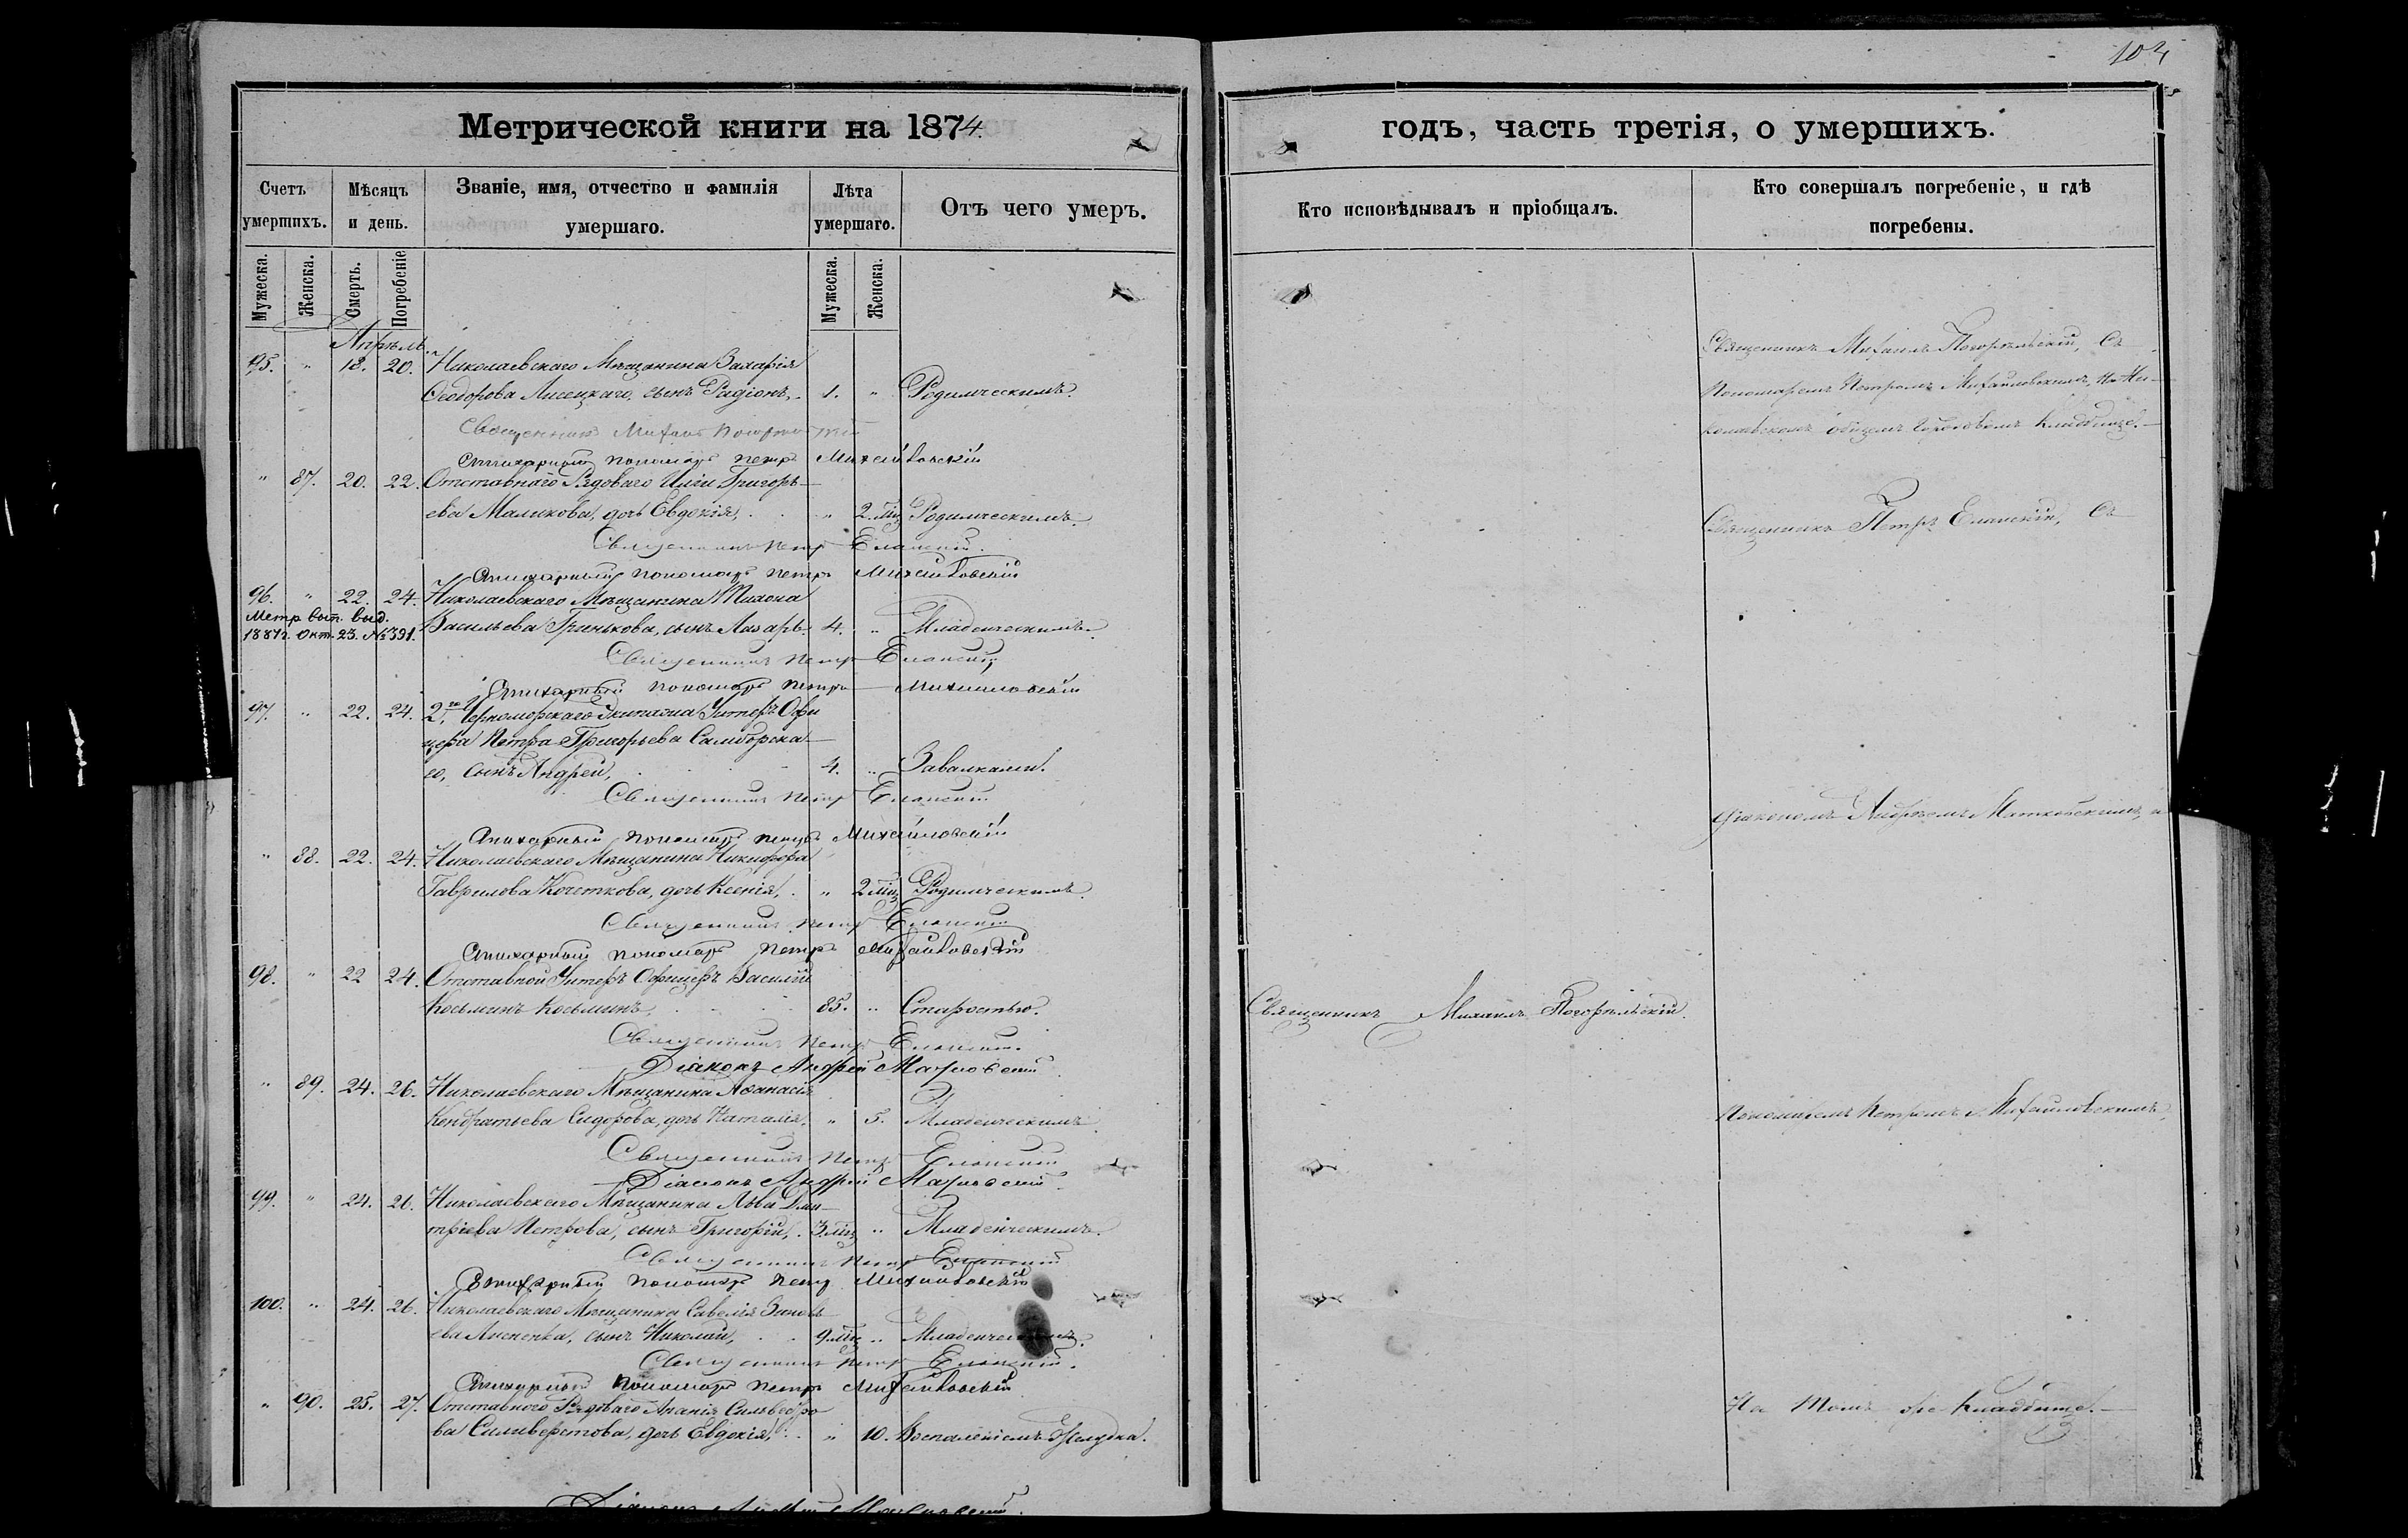 104
Метрической книги на 1874
годъ, часть третія, о умершихъ.
Счетъ умершихъ.
Мѣсяцъ и день.
Званіе, имя, отчество и фамилія умершаго.
Лѣта умершаго.
Отъ чего умеръ.
Кто исповѣдывалъ и пріобщалъ.
Кто совершалъ погребеніе, и гдѣ погребены.
Мужеска. Женска. Смерть. Погребеніе Мужеска. Женска.
Апрѣль.
95. " 18. 20. Николаевскаго Мѣщанина Захарія
Ѳеодорова Лисецкаго, сынъ Радіонъ, 1. " Родимческимъ.
Священникъ Михаил
Стихарный пономарь Петръ Михайловскій
" 87. 20. 22. Отставнаго Рядоваго Иліи Григорь-
ева Маликова, дочь Евдокія, " 2 мц Родимческимъ.
Священникъ Петръ Еланскій.
Стихарный пономарь Петръ Михайловскій
96. " 22. 24. Николаевскаго Мѣщанина Тихона
Метр. вып. выд.
1881 г. Окт. 23. № 391.
Васильева Гринькова, сынъ Лазарь 4. " Младенческимъ.
Священникъ Петръ Еланскій
Стихарный пономарь Петръ Михайловскій
97. " 22. 24. 2го Черноморскаго Экипажа Унтеръ Офи
цера Петра Григорьева Самборска-
го, сынъ Андрей, 4. " Завалками.
Священникъ Петръ Еланскій
Стихарный пономарь Петръ Михайловскій
" 88. 22. 24. Николаевскаго Мѣщанина Никифора
Гаврилова Кочеткова, дочь Ксенія, " 2 мц Родимческимъ.
Священникъ Петръ Еланскій
Стихарный пономарь Петръ Михайловскій
98. " 22 24. Отставной Унтеръ Офицеръ Василій
Косьминъ Косьминъ, 85. " Старостью.
Священникъ Петръ Еланскій.
Діаконъ Андрей
" 89. 24. 26. Николаевскаго Мѣщанина Аѳанасія
Кондратьева Сидорова, дочь Наталія, " 5. Младенческимъ
Священникъ Петръ Еланскій
Діаконъ Андрей
99. " 24. 26. Николаевскаго Мѣщанина Льва Дми-
тріева Петрова, сынъ Григорій, 3 мц " Младенческимъ.
Священникъ Петръ Еланскій
Стихарный пономарь Петръ Михайловскій
100. " 24. 26. Николаевскаго Мѣщанина Савелія
сынъ Николай, 9 мц " Младенческимъ.
Священникъ Петръ Еланскій.
Стихарный пономарь Петръ Михайловскій
" 90. 25. 27. Отставного Рядоваго Ананія
ва Силиверстова, дочь Евдокія, " 10. Воспаленіемъ желудка.
Діаконъ
Священникъ Михаилъ Погорѣльскій, съ
Пономаремъ Петромъ Михайловскимъ, на Ни-
колаевскомъ общемъ Городовомъ Кладбищѣ.
Священникъ Петръ Еланскій, съ
Діакономъ Андреемъ Матковскимъ, и
Священникъ Михаилъ Погорѣльскій.
Пономаремъ Петромъ Михайловскимъ,
На томъ же Кладбищѣ.